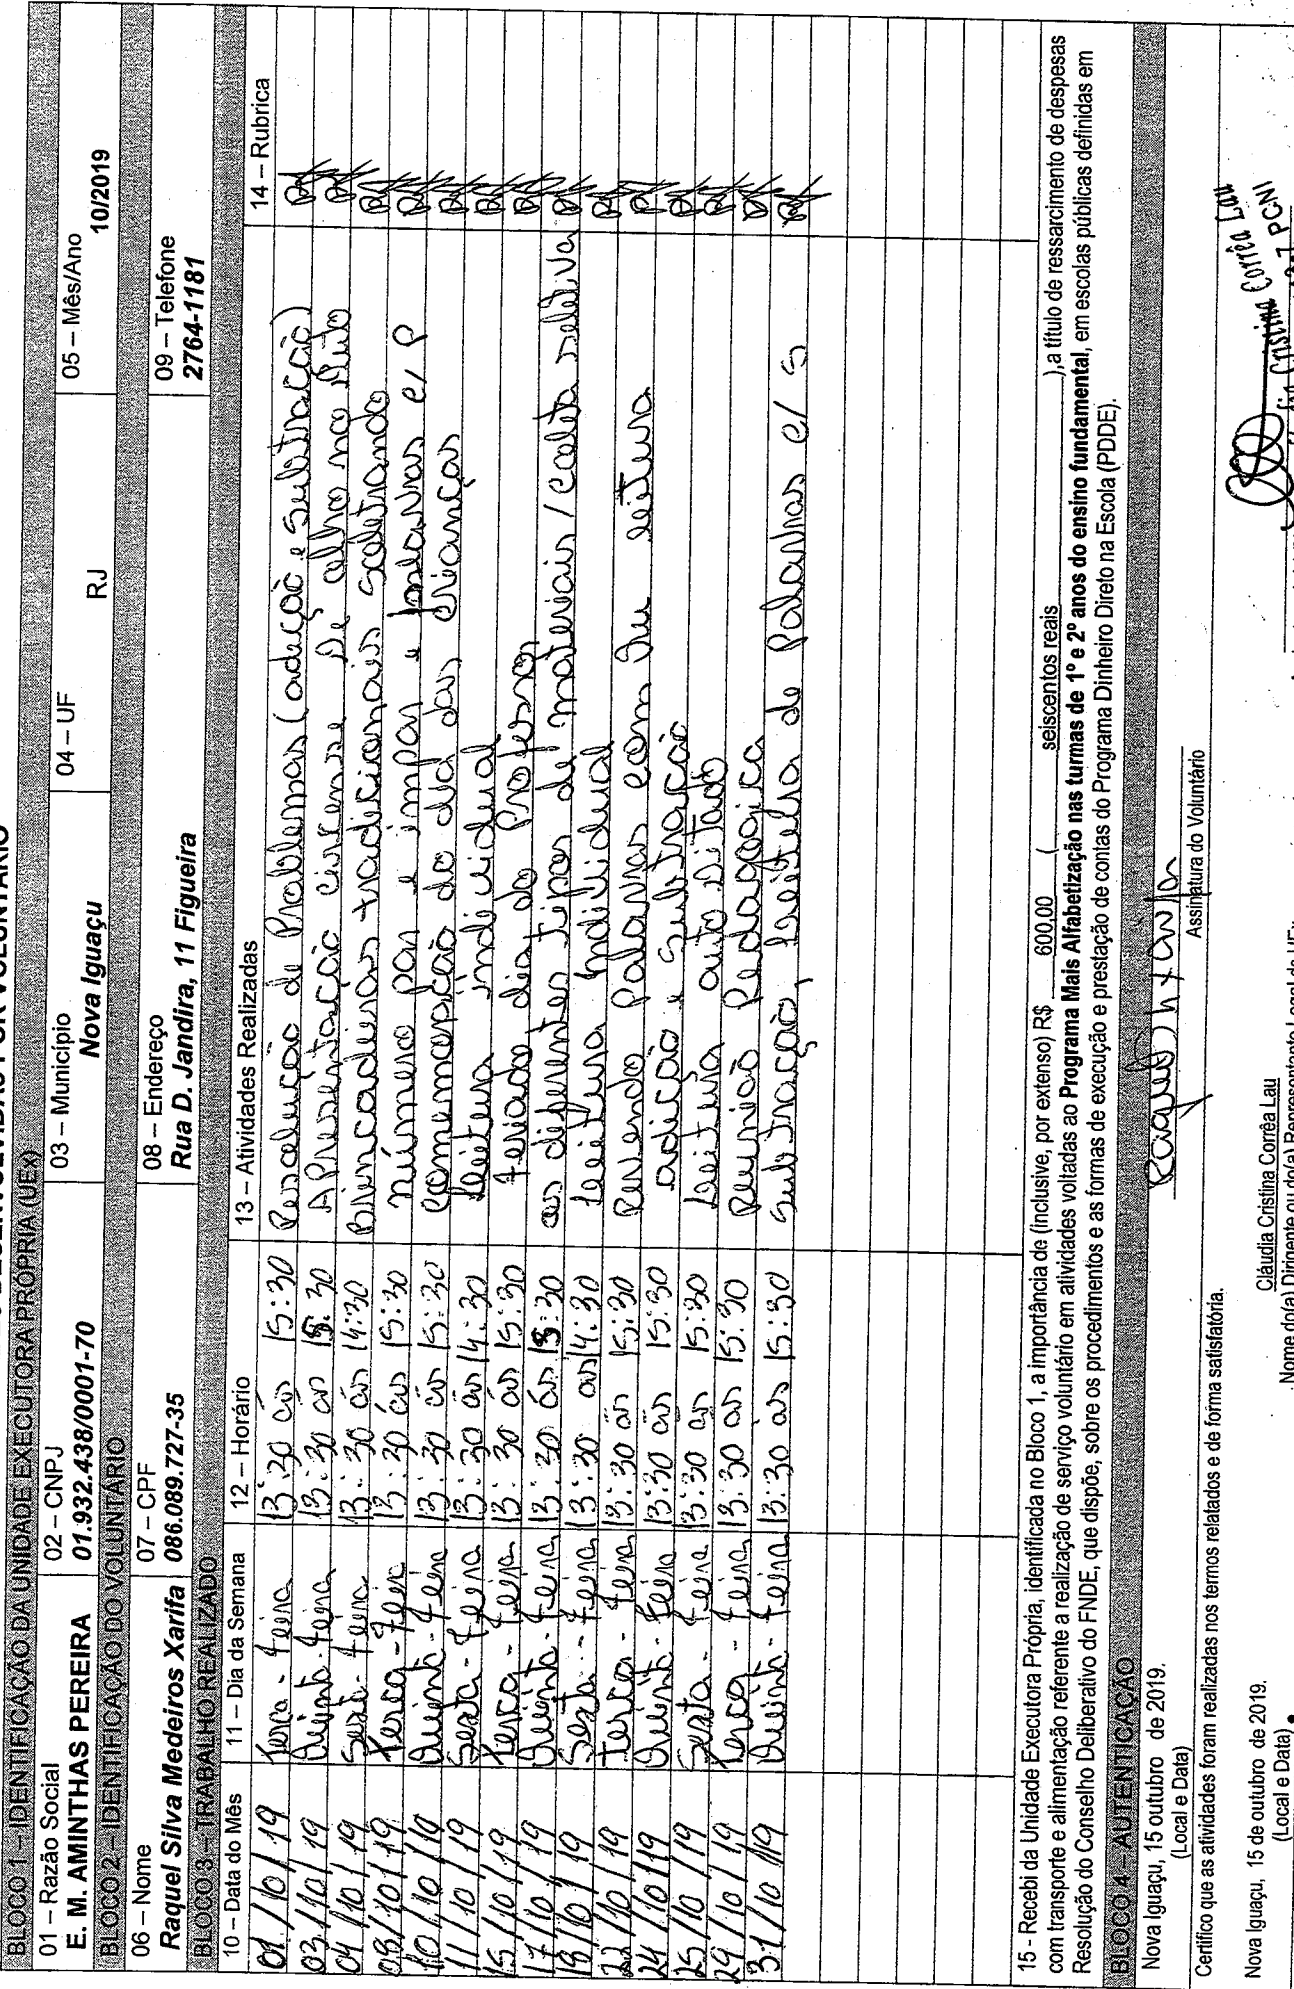 BLOCO 1 – IDENTIFICAÇÃO DA UNIDADE EXECUTORA PRÓPRIA (UEx)
01 – Razão Social 02 – CNPJ 03 – Município 04 – UF 05 – Mês/Ano
E. M. AMINTHAS PEREIRA 01.932.438/0001-70 Nova Iguaçu RJ 10/2019
BLOCO 2 – IDENTIFICAÇÃO DO VOLUNTÁRIO
06 – Nome 07 – CPF 08 – Endereço 09 – Telefone
Raquel Silva Medeiros Xarifa 086.089.727-35 Rua D. Jandira, 11 Figueira 2764-1181
BLOCO 3 – TRABALHO REALIZADO
10 – Data do Mês 11 – Dia da Semana 12 – Horário 13 – Atividades Realizadas 14 – Rubrica
01/10/19 Terça-feira 13:30 às 15:30 Resolução de Problemas (adição e Subtração)
03/10/19 Quinta-feira 13:30 às 15:30 Apresentação circense De olho no Auto
04/10/19 Sexta-feira 13:30 às 14:30 Brincadeiras tradicionais Soletrando
08/10/19 Terça-feira 13:30 às 15:30 número par e impar e palavras c/ P
10/10/19 Quinta-feira 13:30 às 15:30 Comemoração do dia das crianças
11/10/19 Sexta-feira 13:30 às 14:30 Leitura individual
15/10/19 Terça-feira 13:30 às 15:30 feriado dia do Professor
17/10/19 Quinta-feira 13:30 às 15:30 os diferentes tipos de materiais / coleta seletiva
18/10/19 Sexta-feira 13:30 às 14:30 Leitura Individual
22/10/19 Terça-feira 13:30 às 15:30 Revendo Palavras com leitura
24/10/19 Quinta-feira 13:30 às 15:30 adição e Subtração
25/10/19 Sexta-feira 13:30 às 15:30 Leitura auto Ditado
29/10/19 Terça-feira 13:30 às 15:30 Reunião Pedagogica
31/10/19 Quinta-feira 13:30 às 15:30 Subtração, Leitura de Palavras c/ S
15 - Recebi da Unidade Executora Própria, identificada no Bloco 1, a importância de (inclusive, por extenso) R$ 600,00 ( seiscentos reais ),a título de ressarcimento de despesas
com transporte e alimentação referente a realização de serviço voluntário em atividades voltadas ao Programa Mais Alfabetização nas turmas de 1º e 2º anos do ensino fundamental, em escolas públicas definidas em
Resolução do Conselho Deliberativo do FNDE, que dispõe, sobre os procedimentos e as formas de execução e prestação de contas do Programa Dinheiro Direto na Escola (PDDE).
BLOCO 4 – AUTENTICAÇÃO
Nova Iguaçu, 15 outubro de 2019.
(Local e Data) Assinatura do Voluntário
Certifico que as atividades foram realizadas nos termos relatados e de forma satisfatória.
Cláudia Cristina Corrêa Lau
Nova Iguaçu, 15 de outubro de 2019. Cláudia Cristina Corrêa Lau
(Local e Data) Nome do(a) Dirigente ou do(a) Representante Legal da UEx